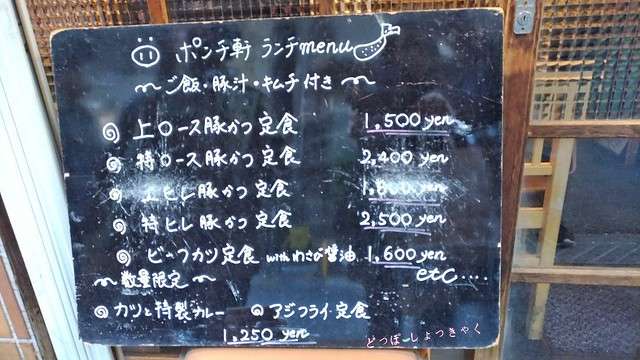 ポンチ軒 ランチmenu
〜ご飯・豚汁・キムチ付き〜
上ロース豚かつ定食 1,500 yen
特ロース豚かつ定食 2,400 yen
上ヒレ豚かつ定食 1,600 yen
特ヒレ豚かつ定食 2,500 yen
ビーフカツ定食 with わさび醤油 1,600 yen
〜数量限定〜 etc....
カツと特製カレー アジフライ定食
1,250 yen